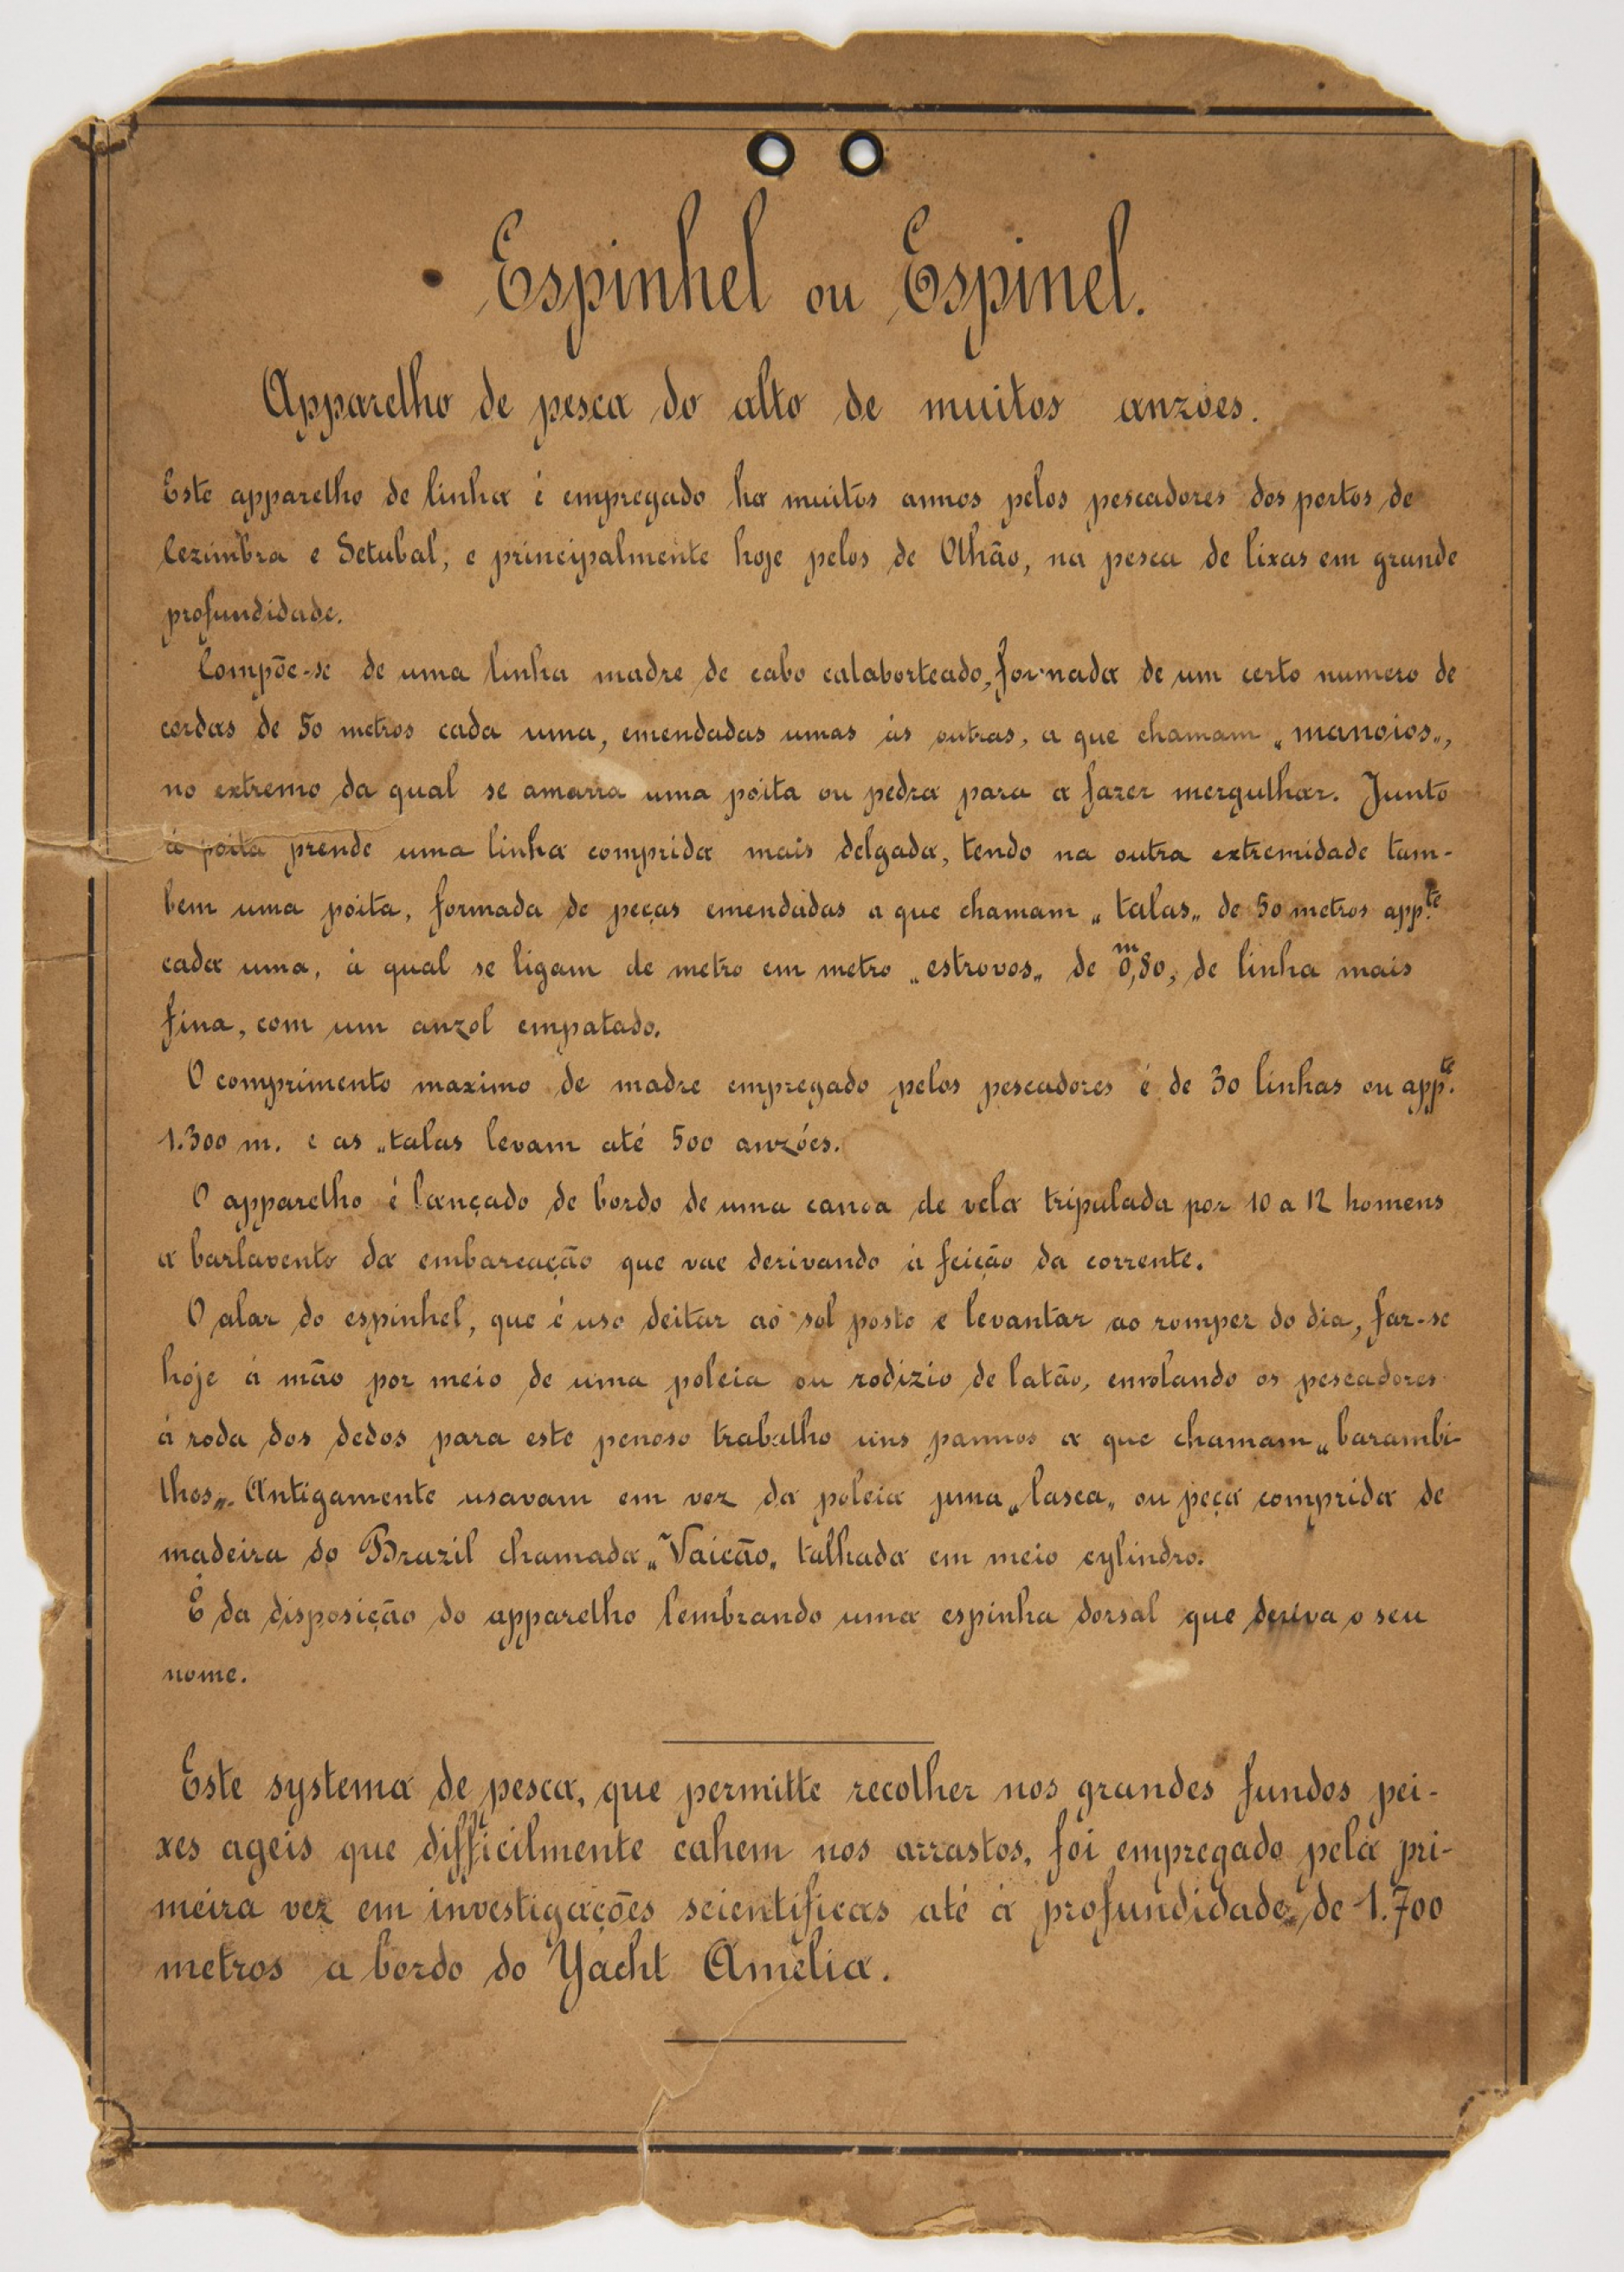 Espinhel ou Espinel.
Apparelho de pesca do alto de muitos anzoes.
Este apparelho de linha é empregado ha muitos annos pelos pescadores dos portos de
Cezimbra e Setubal, e principalmente hoje pelos de Olhão, na pesca de lixas em grande
profundidade.
Compõe-se de uma linha madre de cabo calaborteado, formada de um certo numero de
cordas de 50 metros cada uma, emendadas umas ás outras, a que chamam „manoios„,
no extremo da qual se amarra uma poita ou pedra para a fazer mergulhar. Junto
á poita prende uma linha comprida mais delgada, tendo na outra extremidade tam-
bem uma poita, formada de peças emendadas a que chamam „talas„ de 50 metros app.te
cada uma, á qual se ligam de metro em metro „estrovos„ de 0,m80, de linha mais
fina, com um anzol empatado.
O comprimento maximo de madre empregado pelos pescadores é de 30 linhas ou app.te
1.300 m. e as „talas levam até 500 anzóes.
O apparelho é lançado de bordo de uma canoa de vela tripulada por 10 a 12 homens
a barlavento da embarcação que vae derivando á feição da corrente.
O alar do espinhel, que é uso deitar ao sol posto e levantar ao romper do dia, faz-se
hoje á mão por meio de uma poleia ou rodizio de latão, enrolando os pescadores
á roda dos dedos para este penoso trabalho uns pannos a que chamam „barambi-
lhos„. Antigamente usavam em vez da poleia uma „lasca„ ou peça comprida de
madeira do Brazil chamada „Vaicão„ talhada em meio cylindro.
É da disposição do apparelho lembrando uma espinha dorsal que deriva o seu
nome.
Este systema de pesca, que permitte recolher nos grandes fundos pei-
xes ageis que difficilmente cahem nos arrastos, foi empregado pela pri-
meira vez em investigações scientificas até á profundidade de 1.700
metros a bordo do Yacht Amelia.